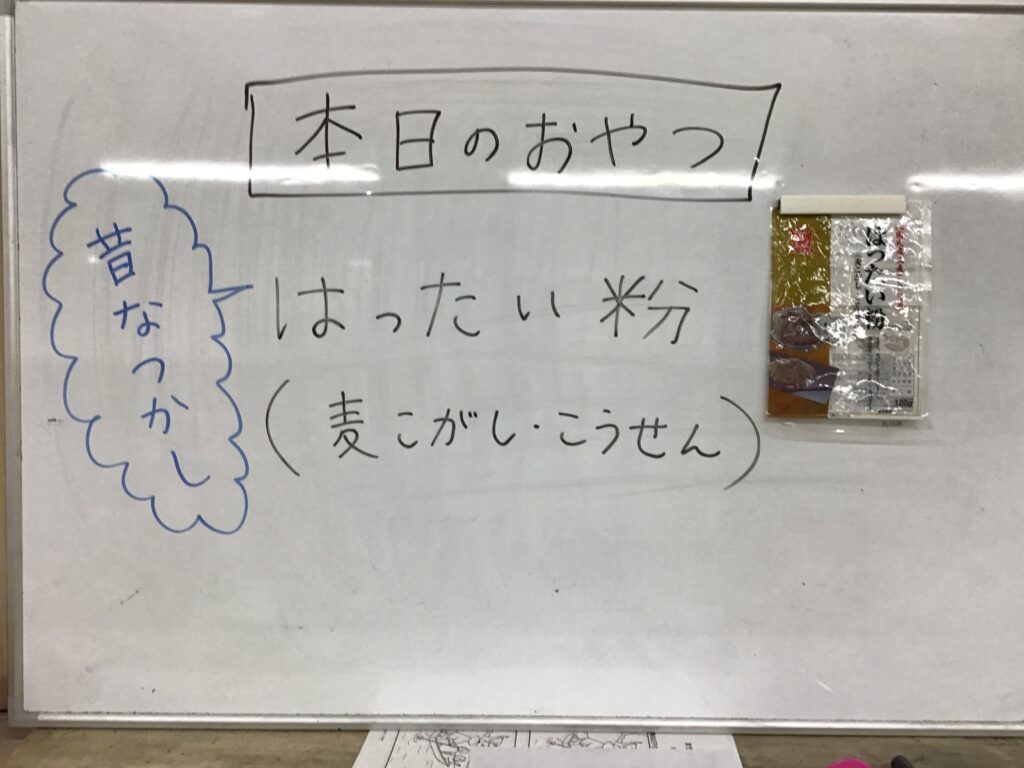 本日のおやつ
昔なつかし
はったい粉
(麦こがし・こうせん)
はったい粉
120g